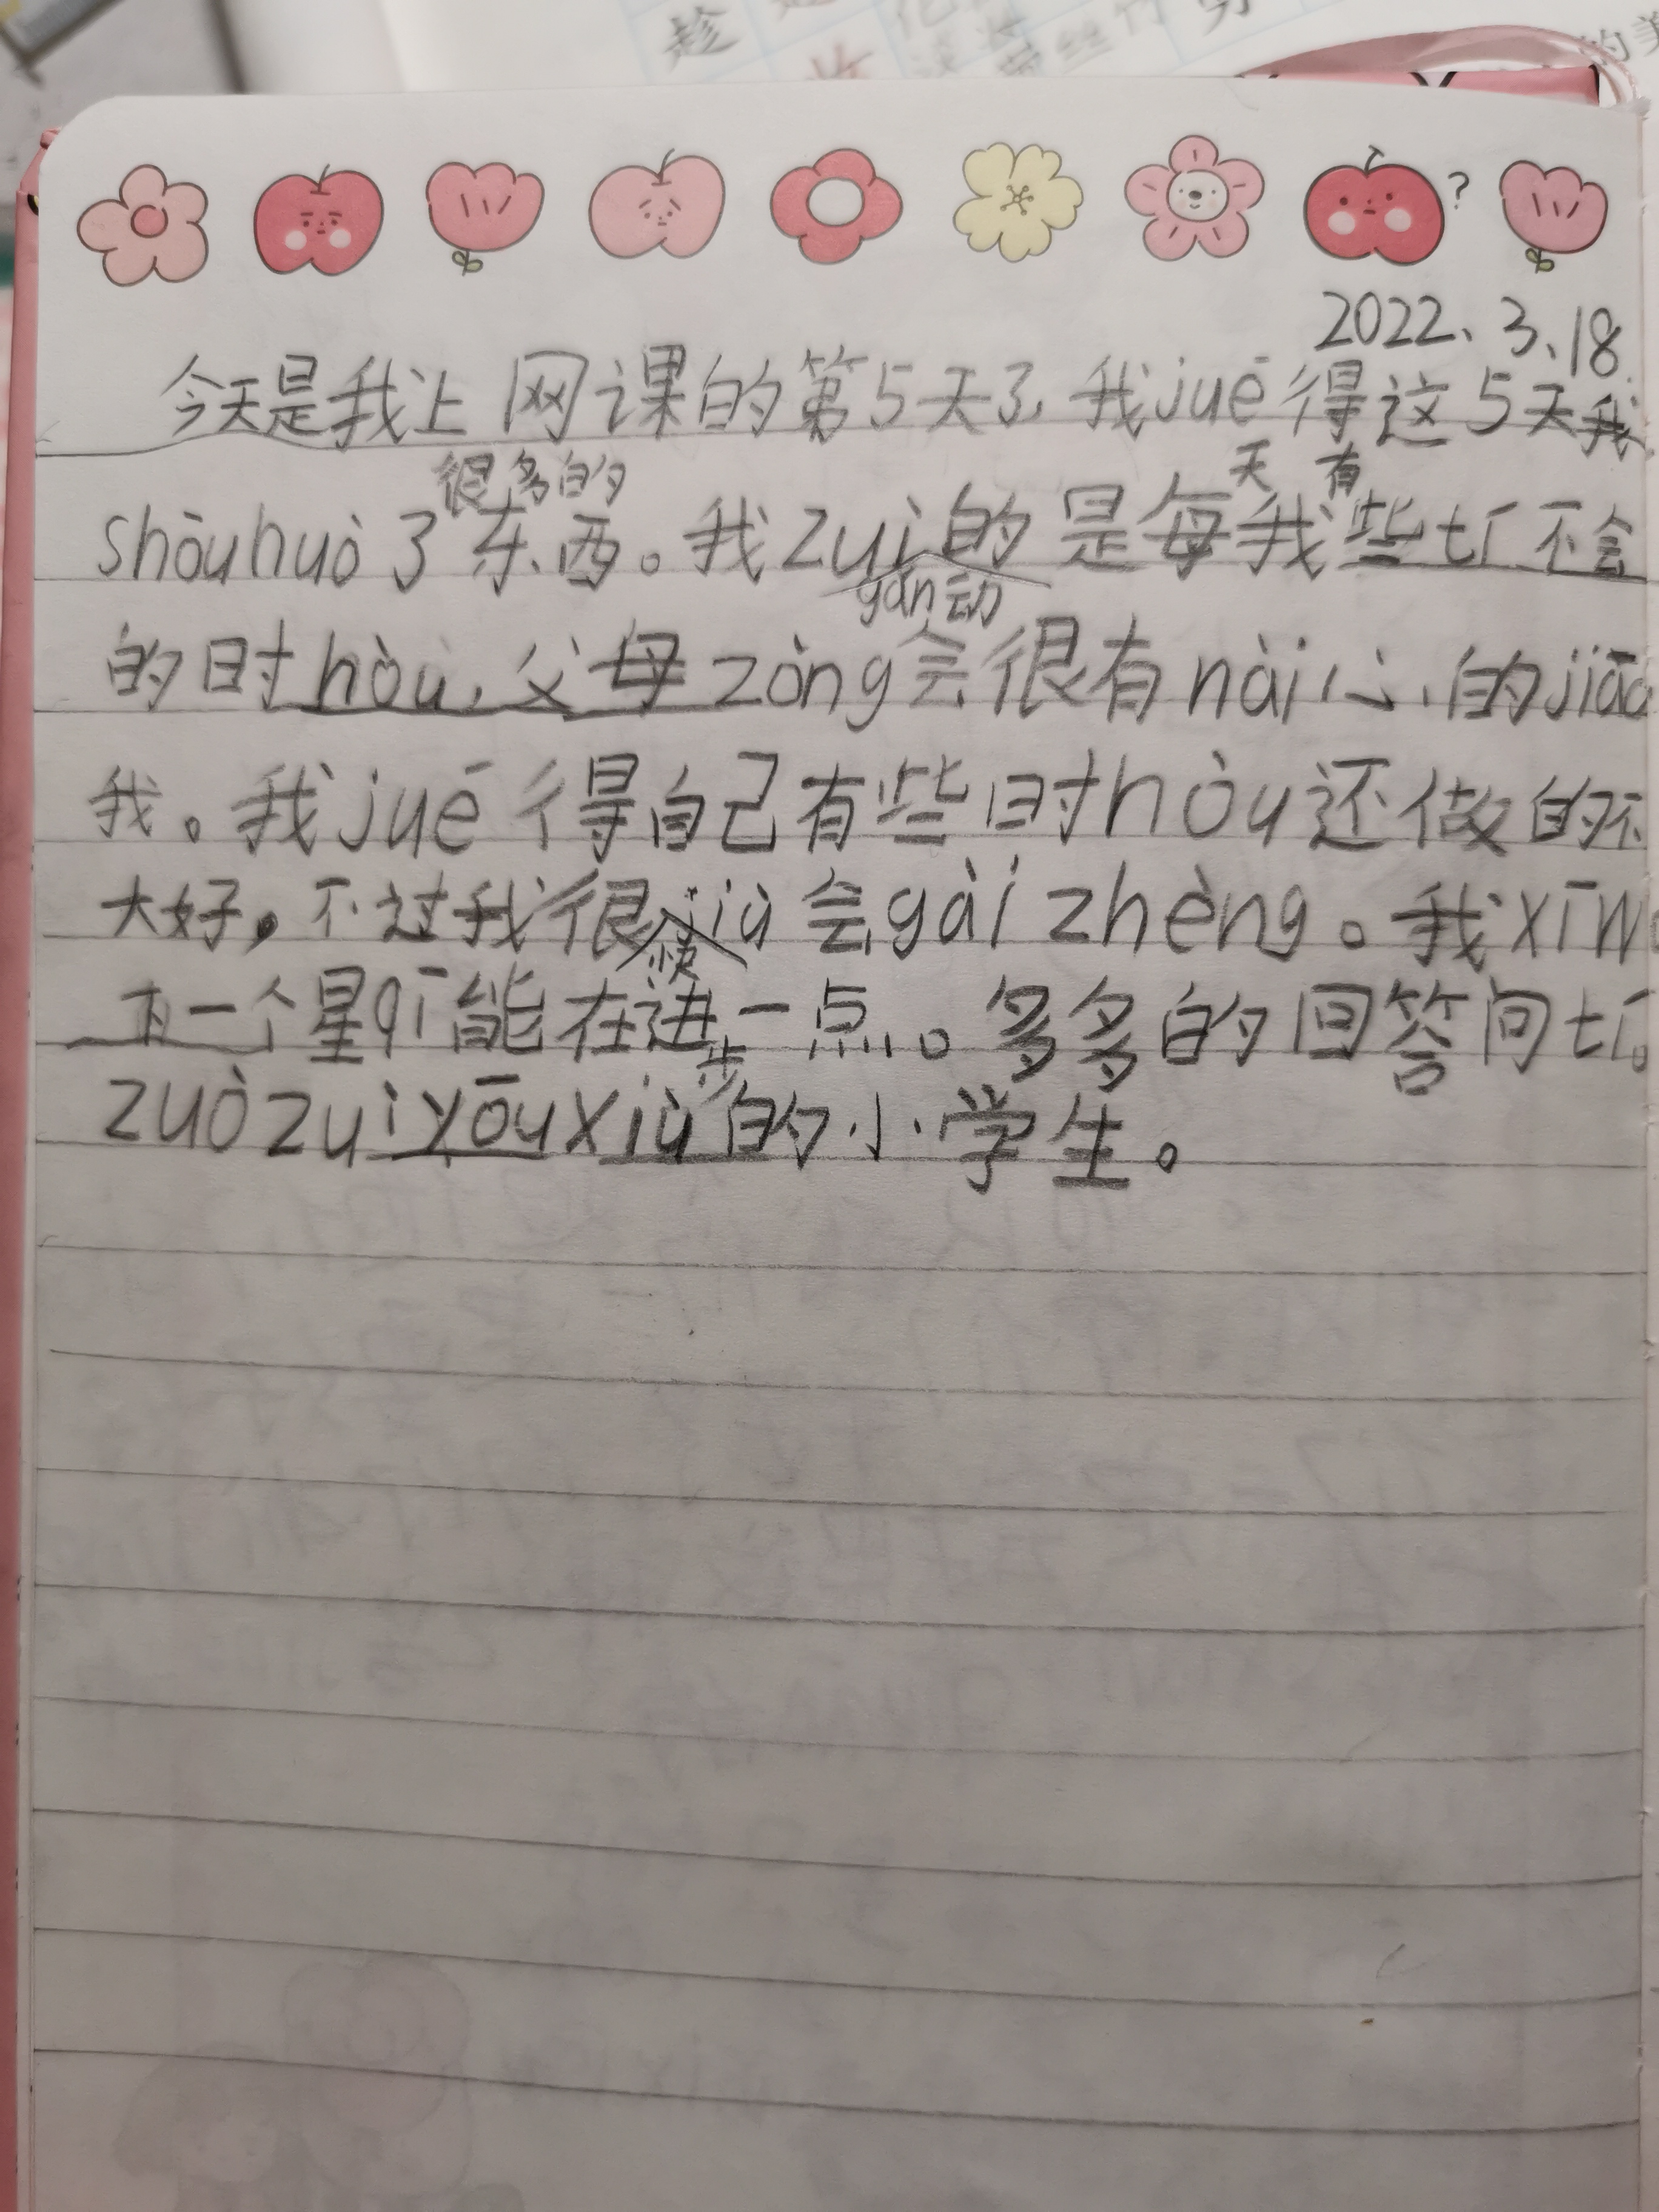 趁
丝竹
的美
2022、3、18
今天是我上网课的第5天了，我juē得这5天我
很多的
天 有
shōuhuò了东西。我zuì的是每我些tí不会
gǎn动
的时hòu，父母zǒng会很有nài心的jiāo
我。我juē得自己有些时hòu还做的不
大好，不过我很jiù会gǎizhèng。我xīw
快
下一个星qī能在进一点。多多的回答问tí。
步
zuòzuìyōuxiù的小学生。